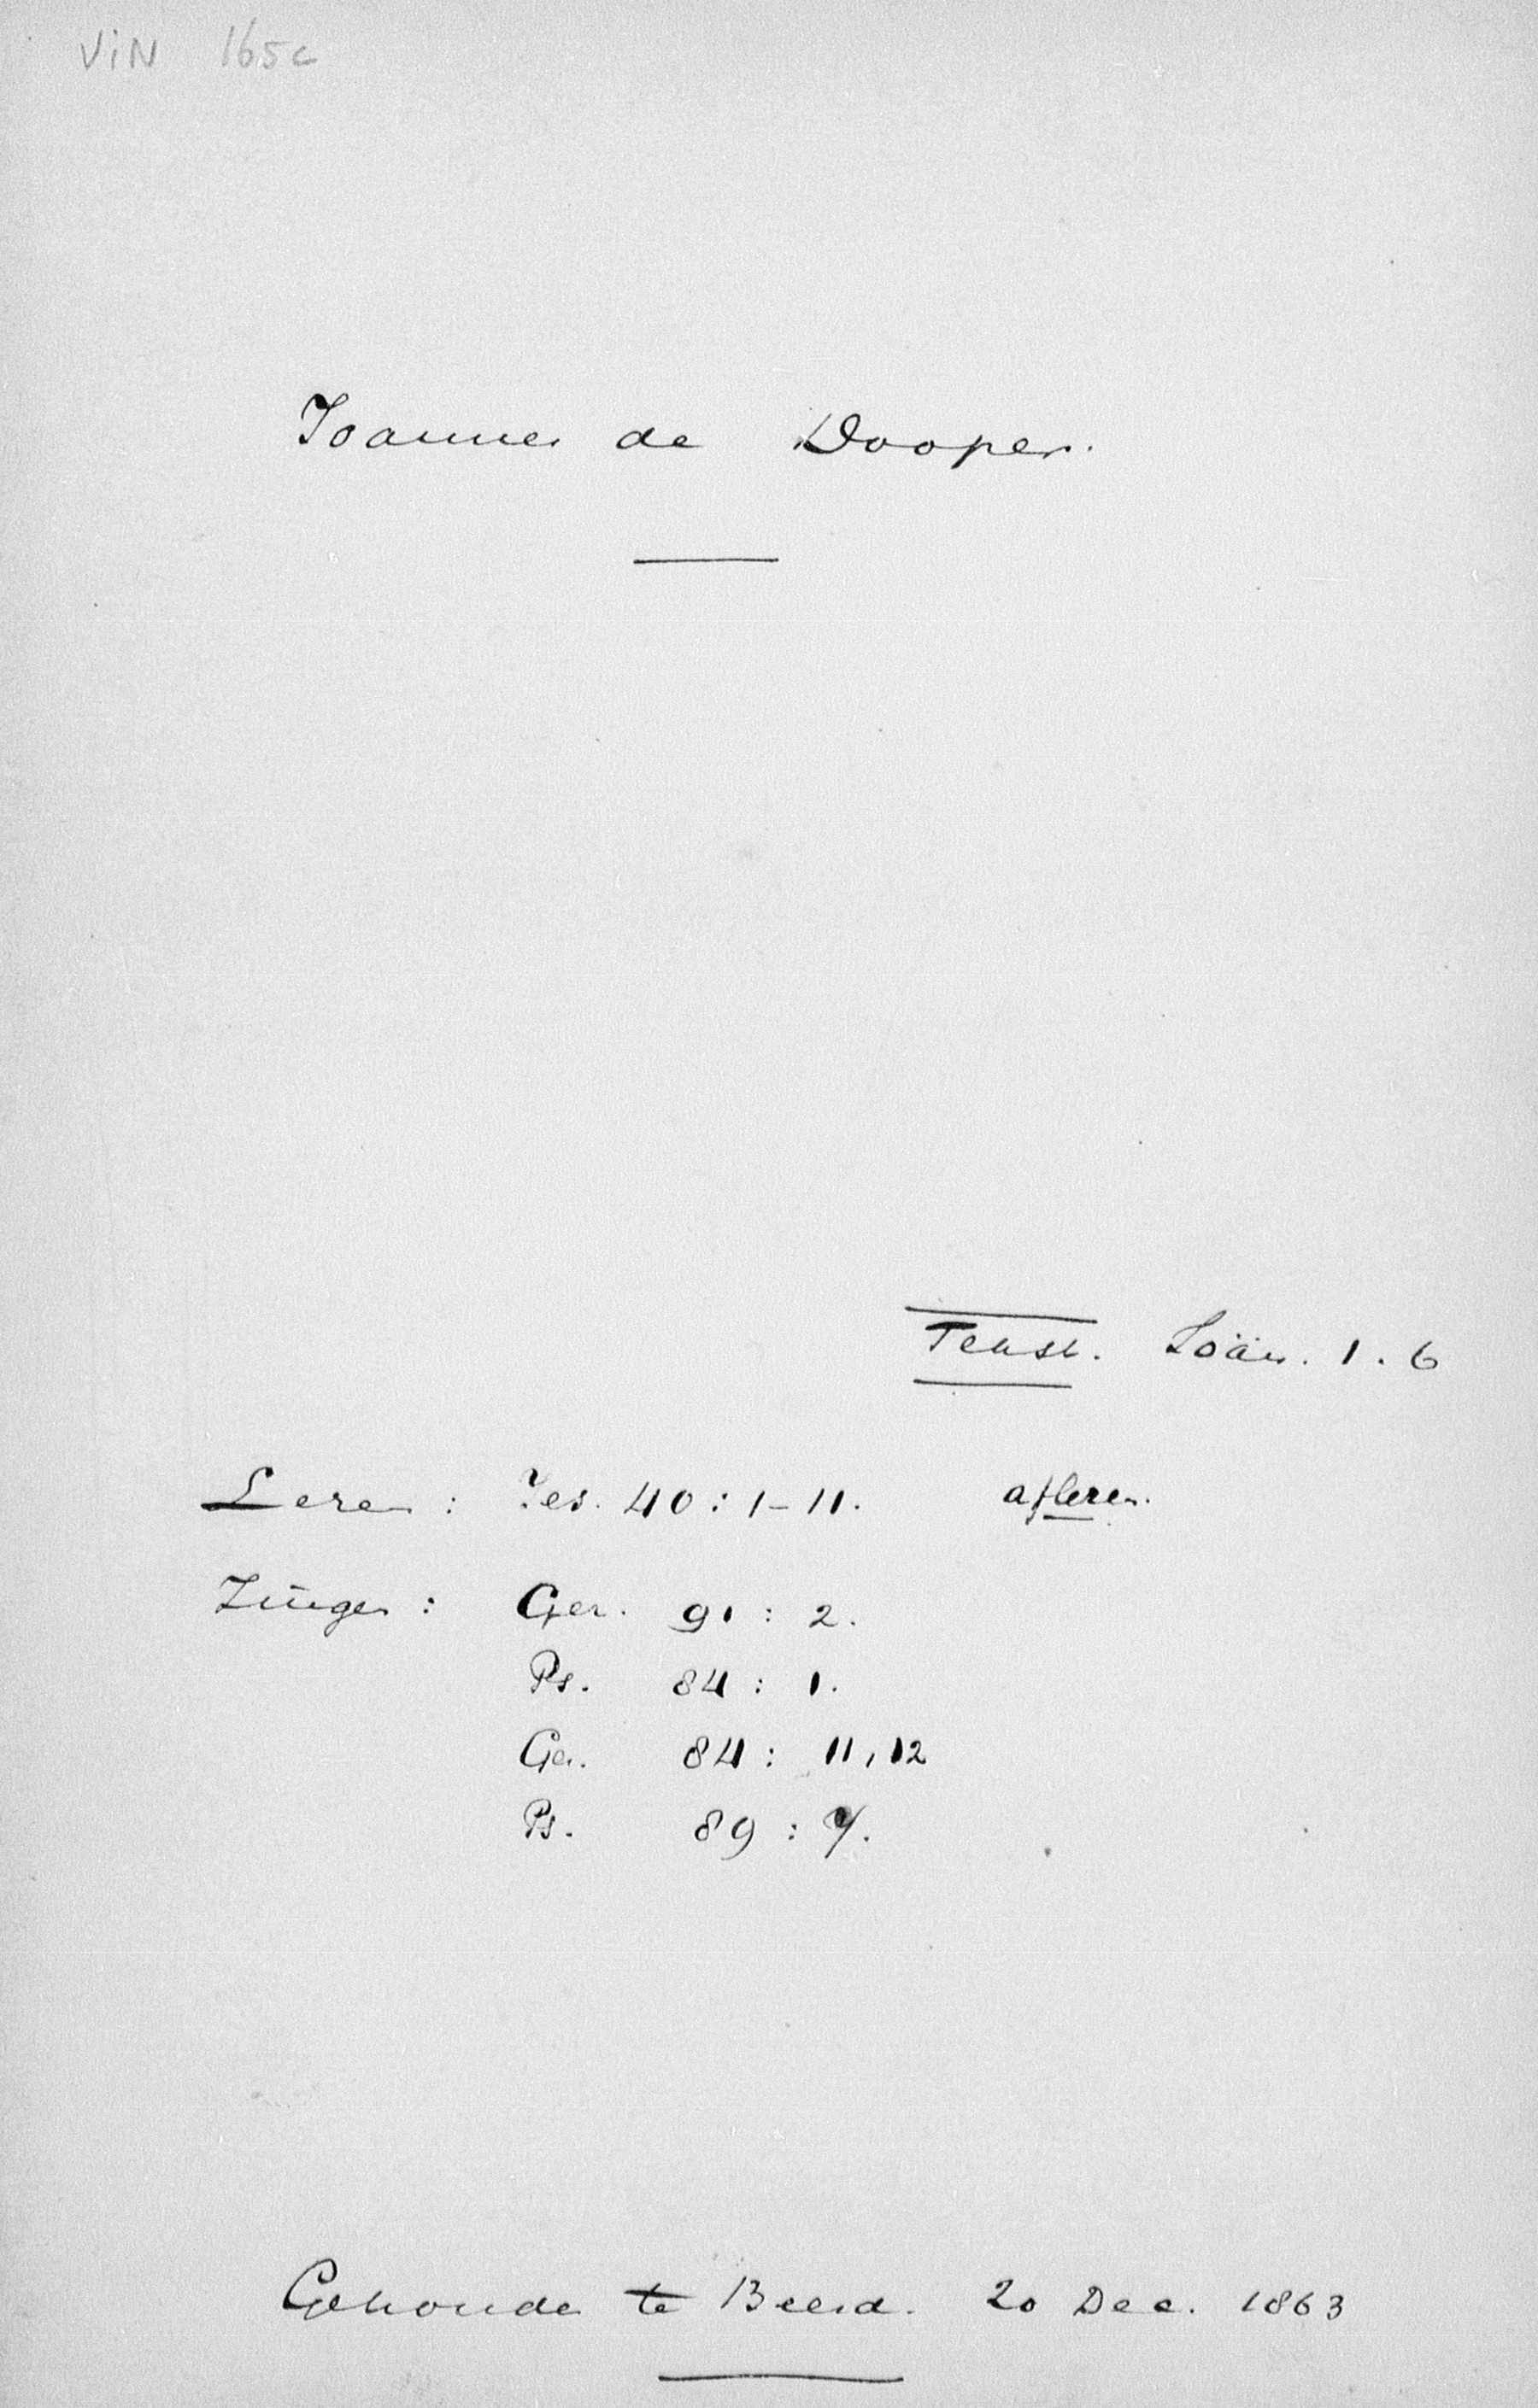 ViN 165c
Joannes de Dooper.
Tekst. Joän. 1. 6
Lezen : Jes. 40 : 1-11. aflezen.
Zingen : Gez. 91 : 2.
Ps. 84 : 1.
Gez. 84 : 11, 12
Ps. 89 : 7.
Gehouden te Beesd. 20 Dec. 1863